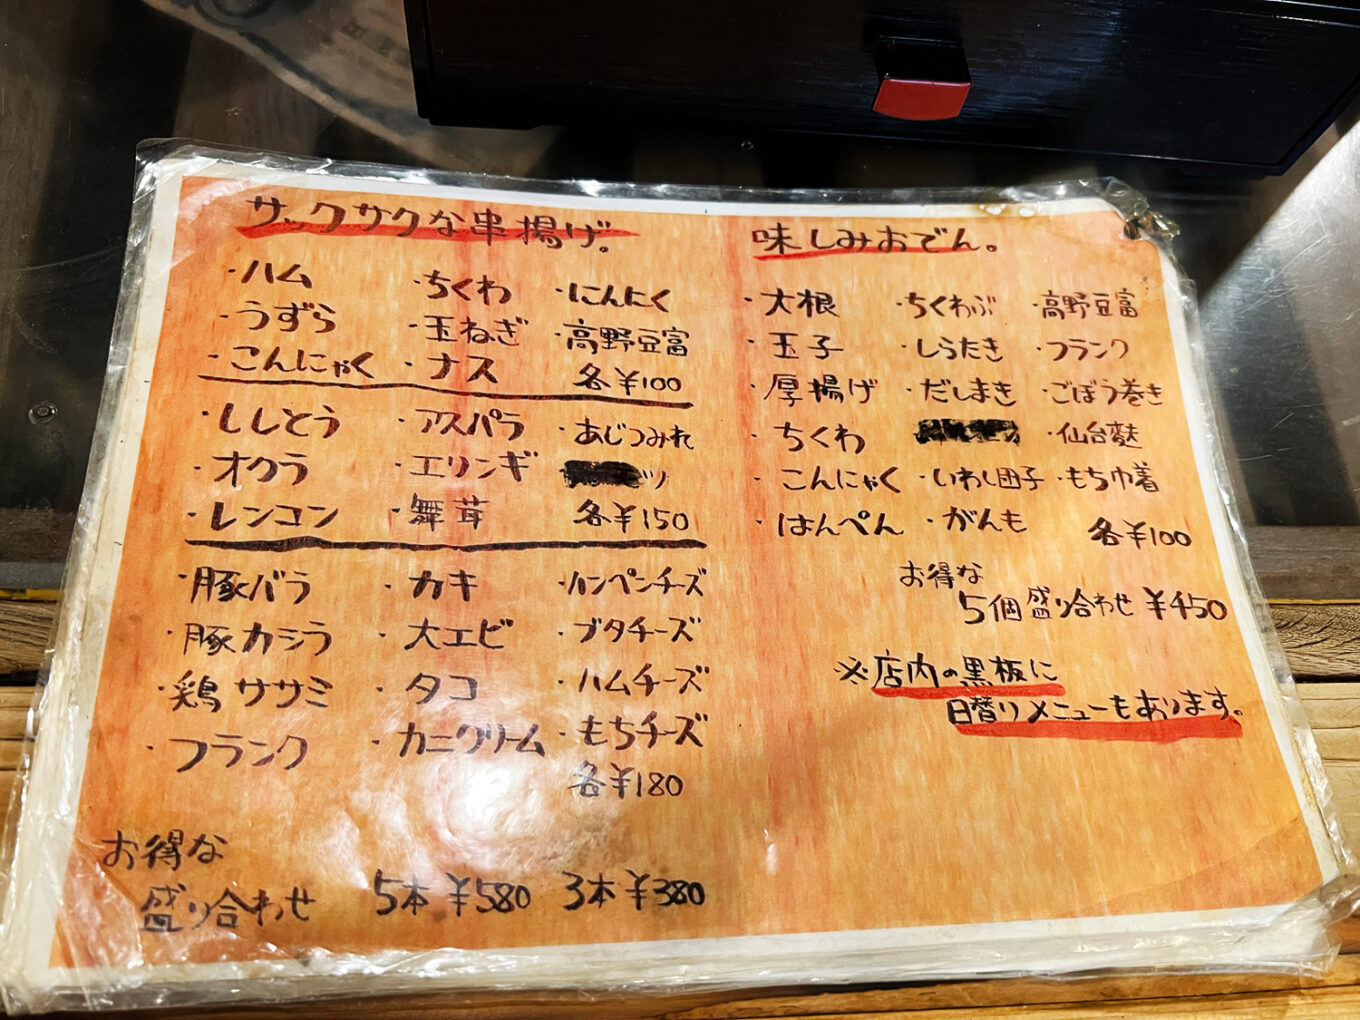 サックサクな串揚げ。
・ハム ・ちくわ ・にんにく
・うずら ・玉ねぎ ・高野豆富
・こんにゃく ・ナス 各¥100
・ししとう ・アスパラ ・あじつみれ
・オクラ ・エリンギ
・レンコン ・舞茸 各¥150
・豚バラ ・カキ ・ハンペンチーズ
・豚カシラ ・大エビ ・ブタチーズ
・鶏ササミ ・タコ ・ハムチーズ
・フランク ・カニクリーム ・もちチーズ
各¥180
お得な
盛り合わせ 5本¥580 3本¥380
味しみおでん。
・大根 ・ちくわぶ ・高野豆富
・玉子 ・しらたき ・フランク
・厚揚げ ・だしまき ・ごぼう巻き
・ちくわ ・仙台麩
・こんにゃく ・いわし団子 ・もち巾着
・はんぺん ・がんも 各¥100
お得な
5個盛り合わせ ¥450
※店内の黒板に
日替りメニューもあります。